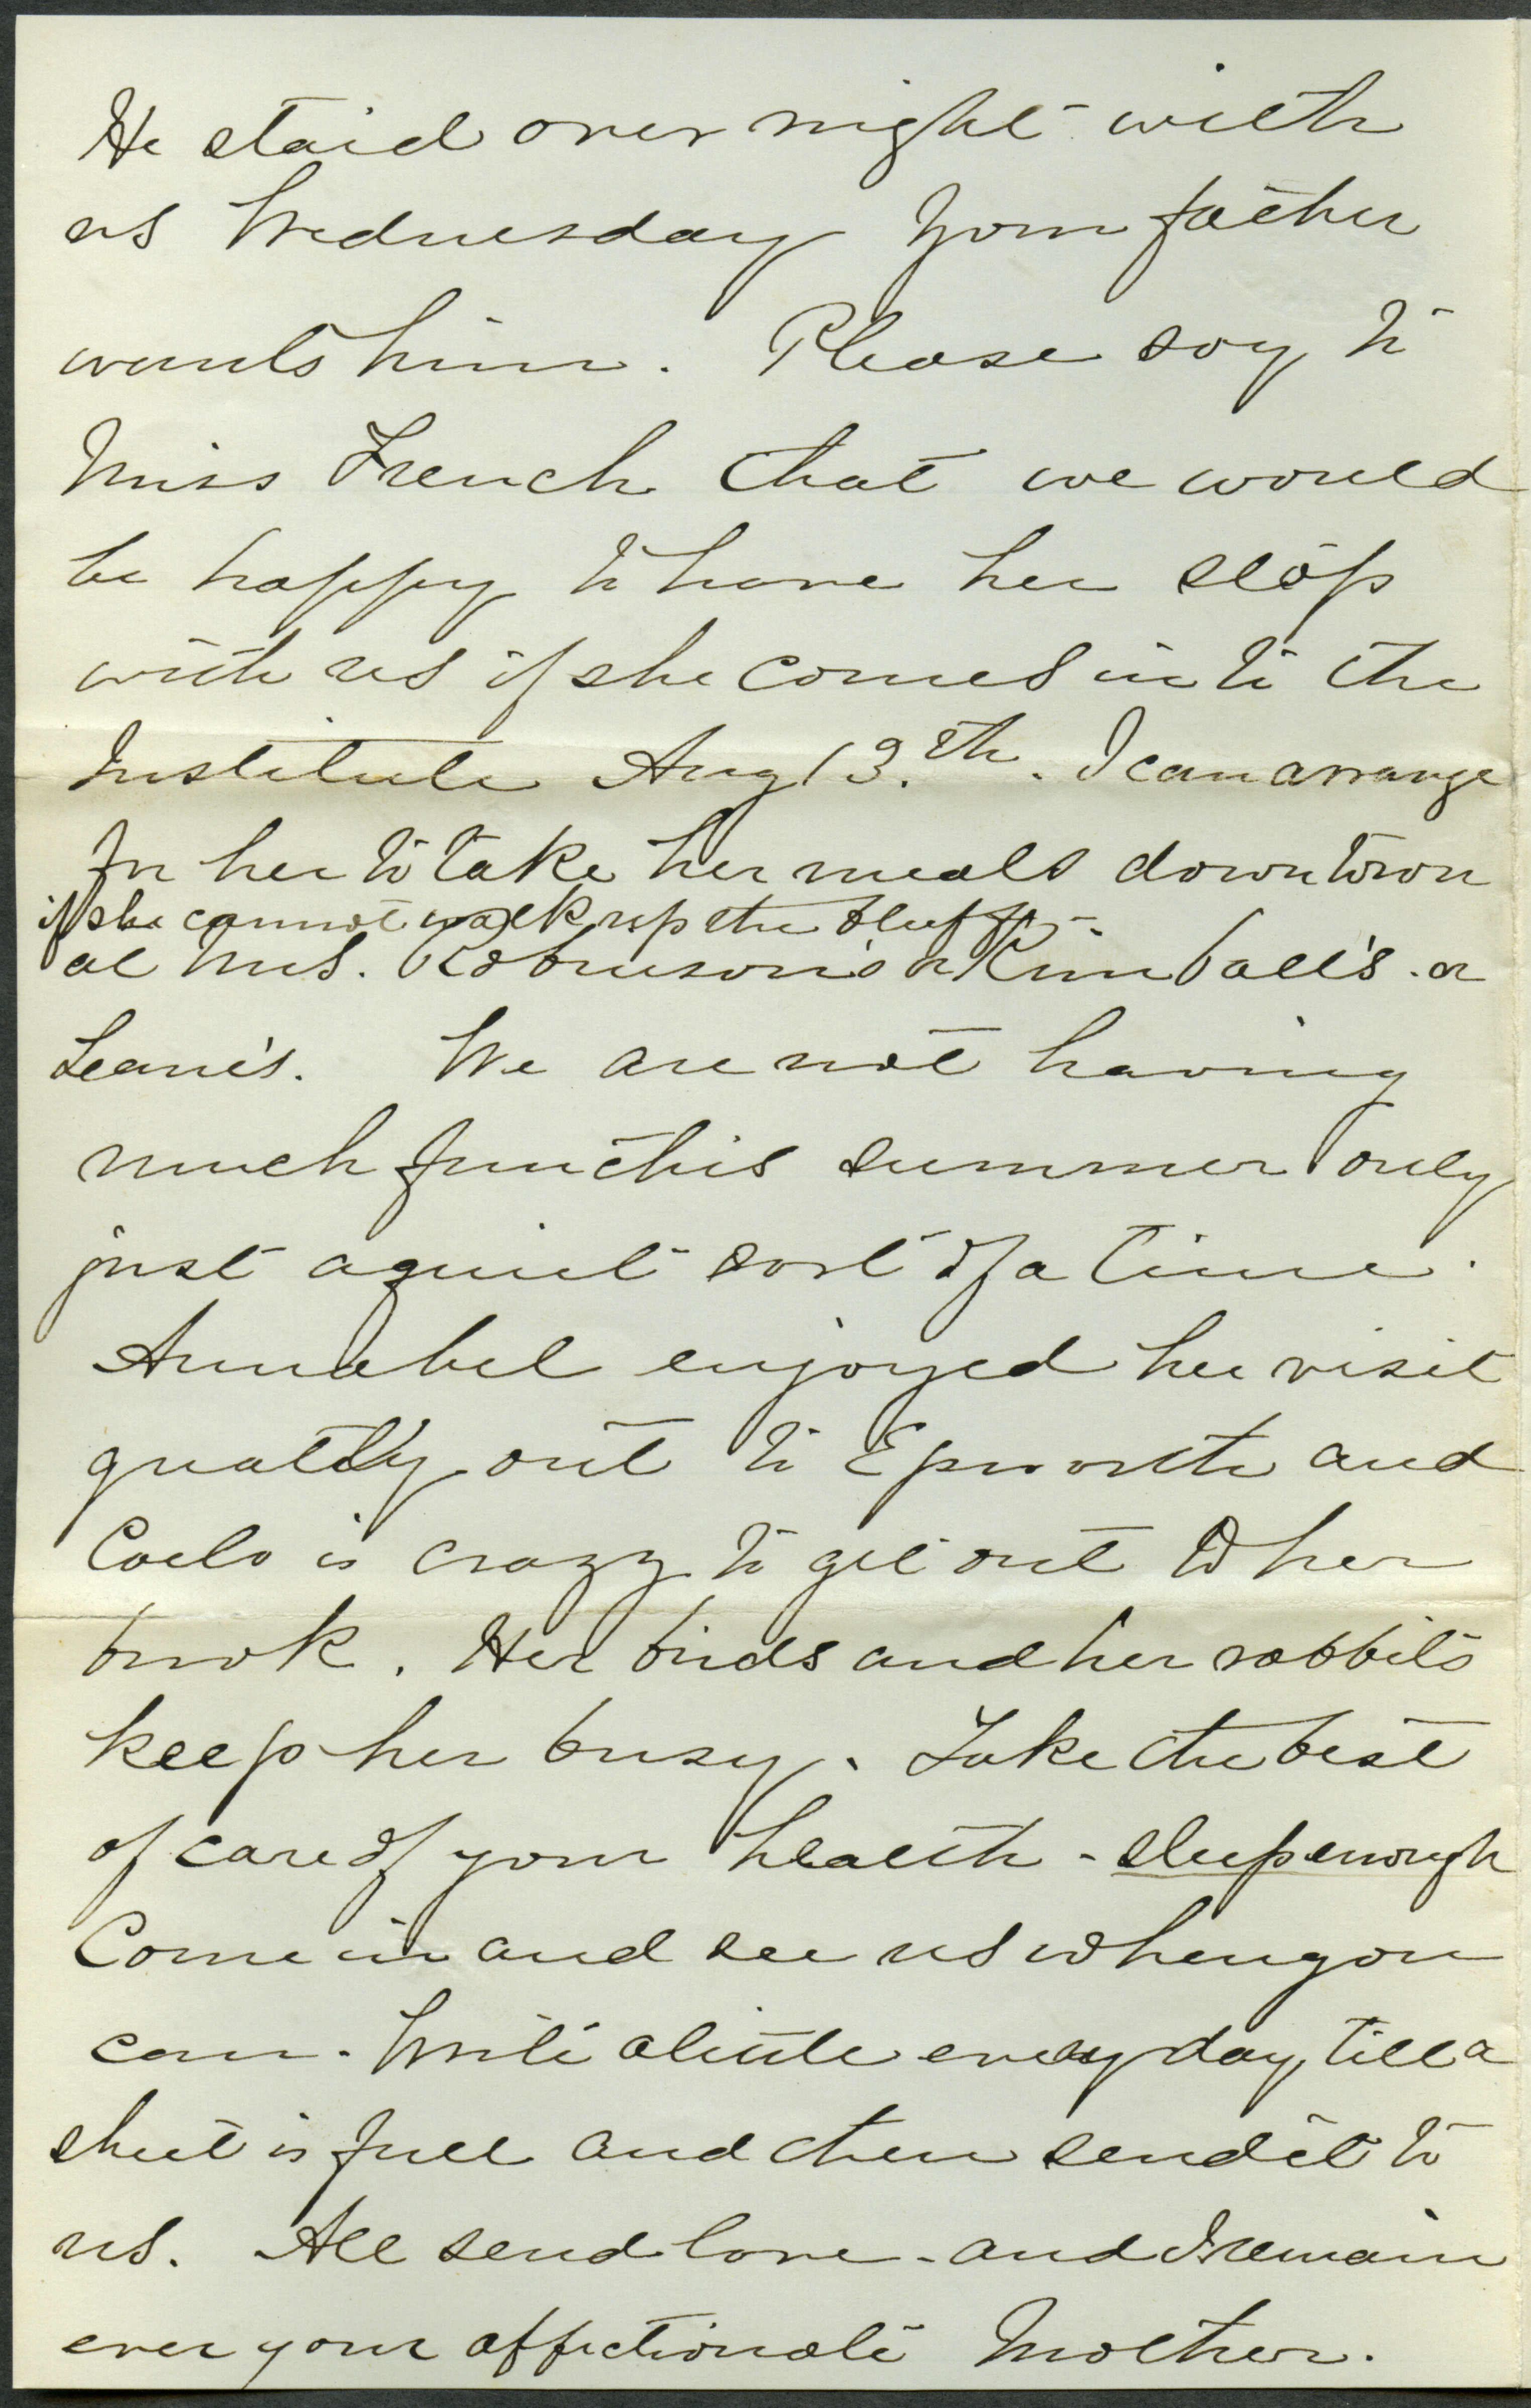 He staid over night with
us Wednesday Your father
wants him. Please say to
Miss French that we would
be happy to have her stop
with us if she comes in to the
Institute Aug 13.th. I can arrange
for her to take her meals down town
if she cannot walk up the bluff
at Mrs. Robinson's or Kimball's. or
Leane's. We are not having
much fun this summer only
just a quiet sort of a time.
Annabel enjoyed her visit
greatly out to Epworth and
is crazy to get out to her
brook. Her birds and her rabbits
keep her busy. Take the best
of care of your health - sleep enough
Come in and see us when you
can. Write a little every day, till a
sheet is full and then send it to
us. All send love - and I remain
ever your affectionate Mother.